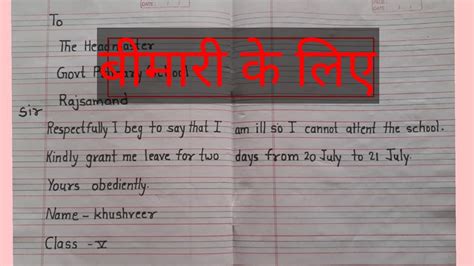 To
The Headmaster
Govt Primary School
बीमारी के लिए
Rajsamand
Sir
Respectfully I beg to say that I am ill so I cannot attent the school.
Kindly grant me leave for two days from 20 July to 21 July.
Yours obediently.
Name - khushreer
Class - V